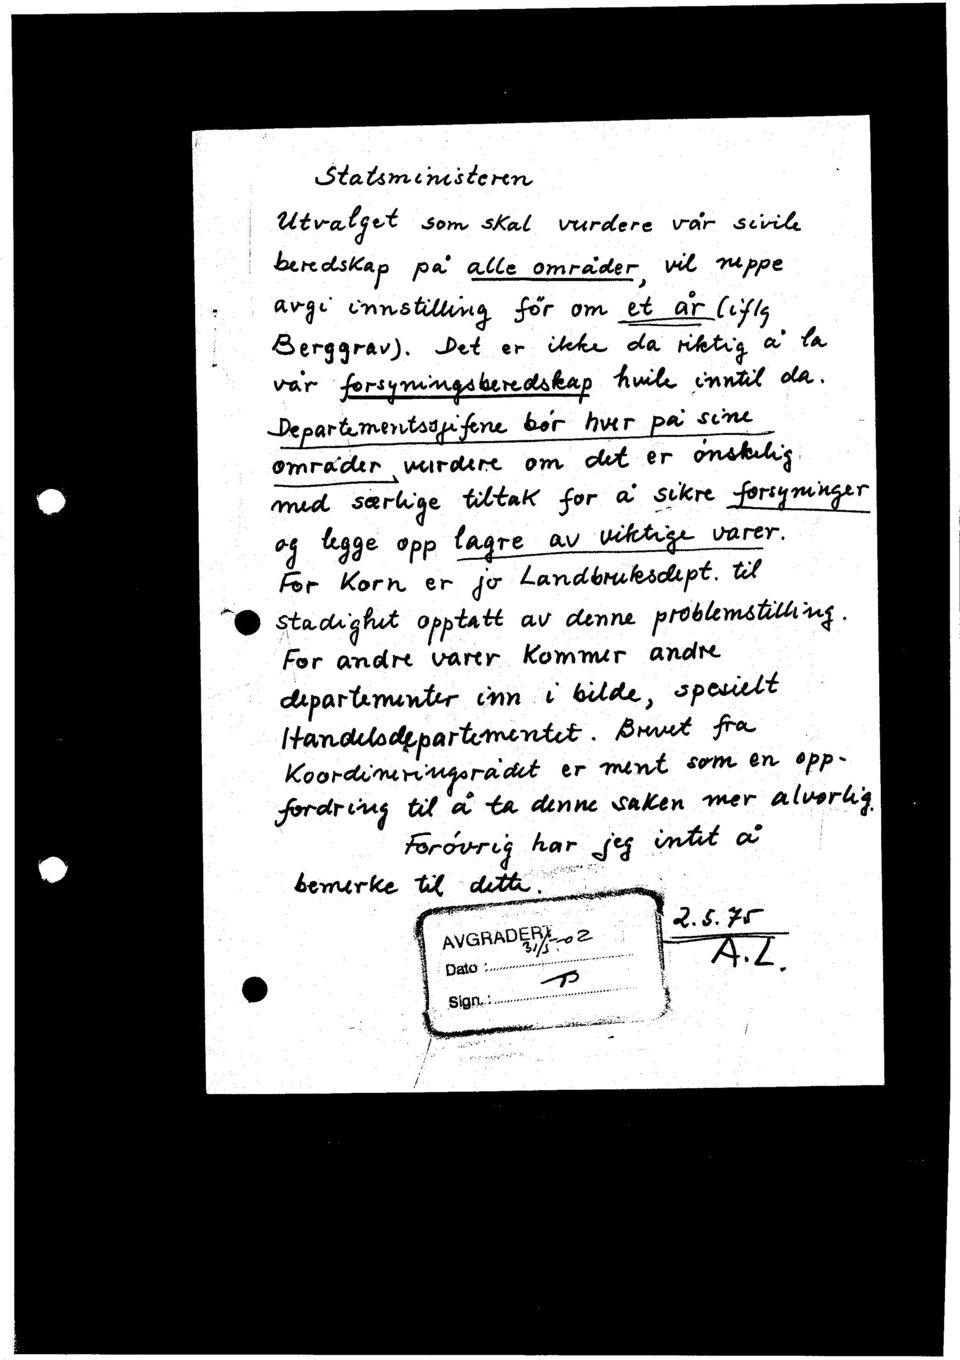 Statsministeren
Utvalget som skal vurdere vår sivile
beredskap på alle områder, vil neppe
avgi innstilling för om et år (iflg
Berggrav). Det er ikke da riktig å la
vår forsyningsberedskap hvile inntil da.
Departementssjefene bör hver på sine
områder vurdere om det er önskelig
med særlige tiltak for å sikre forsyninger
og legge opp lagre av viktige varer.
For Korn er jo Landbruksdept. til
stadighet opptatt av denne problemstilling.
For andre varer kommer andre
departementer inn i bilde, spesielt
Handelsdepartementet. Brevet fra
Koordineringsrådet er ment som en opp-
fordring til å ta denne saken mer alvorlig.
Forövrig har jeg intet å
bemerke til dette.
2.5.75
A.L.
AVGRADERT
Dato : 31/5-02
Sign. :